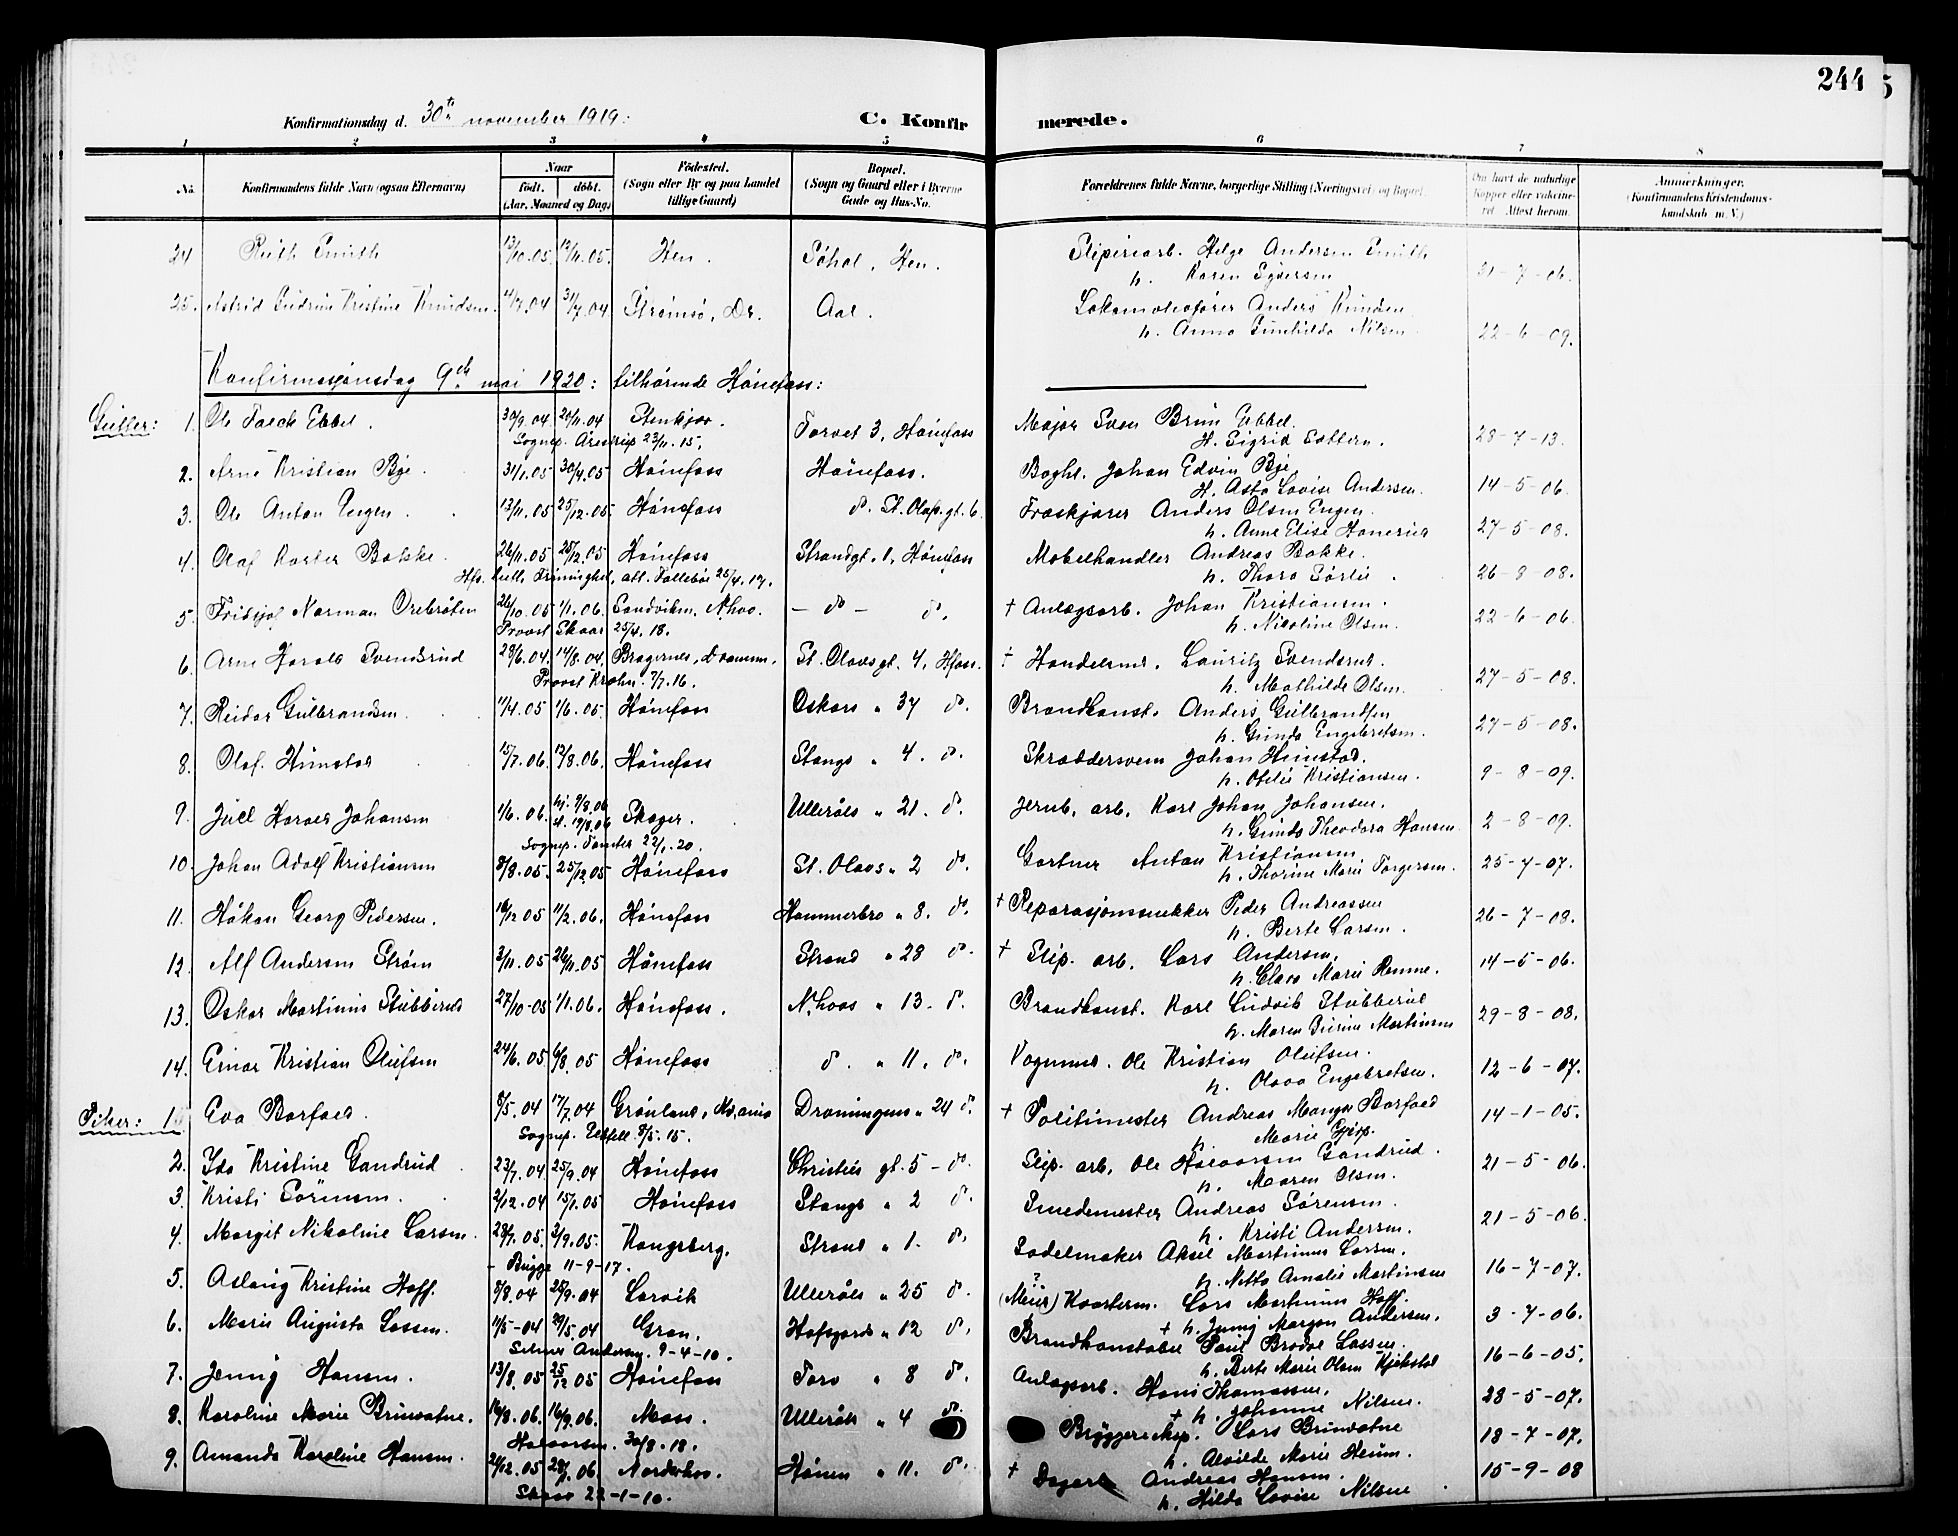 244
Konfirmationsdag d. 30te november 1919:
C. Konfirmerede.
1 2 3 4 5 6 7 8
No. Konfirmandens fulde Navn (ogsaa Efternavn) Naar født. døbt. (Aar, Maaned og Dag) Fødested. (Sogn eller By og paa Landet tillige Gaard) Bopæl. (Sogn og Gaard eller i Byerne Gade og Hus-No. Forældrenes fulde Navne, borgerlige Stilling (Næringsvei) og Bopæl. Om havt de naturlige Kopper eller vakcineret. Attest herom. Anmærkninger. (Konfirmandens Kristendomskundskab m. V.)
24 Ruth Smith 13/10.05 12/11.05. Hen. Søhol, Hen. Sliperiarb. Helge Andersen Smith 21-7-06.
h. Karen Syversen
25. Astrid Gudrun Kristine Knudsen. 11/7.04 31/7.04 Strømsø, Dr. Aal. Lokomotivfører Anders Knudsen
h. Anna Gunhilda Nilsen. 22-6-09.
Konfirmasjonsdag 9de mai 1920: tilhørende Hønefoss:
Gutter: 1. Ole Falck Ebbel. 30/9.04 20/11.04 Stenkjær. Torvet 3, Hønefoss Major Sven Brun Ebbel. 28-7-13.
Sognep. Arestrup 23/11.15. H. Sigrid
2. Arne Kristian Bye. 31/1.05 30/4.05 Hønefoss Hønefoss. Boghl. Johan Edvin Bye
H. Asta Lovise Andersen. 14-5-06.
3. Ole Anton Engen. 13/11.05 25/12.05 Hønefoss do. St. Olafs.gt. 6 Fraskjærer Anders Olsen Engen
h. Anne Elise Hanerud 27-5-08.
4. Olaf Bakke. 26/11.05 25/12.05 Hønefoss Strandgt. 1, Hønefoss Møbelhandler Andreas Bakke.
h. Thora Sørlie. 26-8-08.
5. Fridtjof Norman Orebråten 26/10.05 1/1.06. Sandviken, N.hov. — do — do. † Anlægsarb. Johan Kristiansen.
Provst Skaar 25/4.18. h. Nikoline Olsen. 22-6-06.
6. Arne Harald Svendsrud 28/6.04. 14/8.04. Bragernes, Drammen. St. Olavsgt. 4, Hfoss. † Handelsmd. Lauritz Svendsrud.
Provst Krohn. 7/7.16. h. Mathilde Olsen. 27-5-08.
7. Reidar Gulbrandsen. 11/4.05 1/6.05. Hønefoss Oskars „ 37 do. Brandkonst. Anders Gulbrandsen
h. Gunda Engebretsen. 27-5-08.
8. Olaf Hunstad 15/7.06. 12/8.06. Hønefoss Stangs „ 4. do. Skræddersvenn Johan Hunstad.
h. Otelie Kristiansen. 9-8-09.
9. Juell Harald Johansen 1/6.06. hj. 9/8.06 st. 19/8.06 Skoger. Ulleråls „ 21. do. Jernb. arb. Karl Johan Johansen.
Sognep. 22/1.20. h. Gunda Theodora Hansen. 2-8-09.
10. Johan Adolf Kristiansen 8/8.05. 25/12.05 Hønefoss St. Olavs „ 2 do. Gartner Anton Kristiansen
h. Thorine Marie Torgersen. 25-7-07.
11. Håkon Georg Pedersen. 16/12.05 11/2.06. Hønefoss Hammerbro „ 8. do. † Reparasjonssnekker Peder Andreassen
h. Berte Larsen. 26-7-08.
12. Alf Andersen Strøm 3/11.05 26/11.05 Hønefoss Strand „ 28 do. † Slip. arb. Lars Andersen,
h. Clara Marie Ramme. 14-5-06.
13. Oskar Martinius Stubberud 27/10-05 1/1.06. Hønefoss. N.hovs „ 13. do. Brandkonst. Karl Ludvik Stubberud
h. Maren Gurine Martinsen 29-8-08.
14. Einar Kristian Olufsen 24/6.05 6/8.05 Hønefoss do. „ 11. do. Vognmd. Ole Kristian Olufsen.
h. Olava Engebretsen. 12-6-07.
Piker: 1. Eva Barfoed. 8/5.04 17/7.04 Grønland, Kr.ania Dronningens „ 24 do. † Politimester Andreas Barfoed
8/5.15. h. Marie 14-1-05.
2. Ida Kristine Gandrud 23/7.04 25/9.04 Hønefoss Christies gt. 5 – do. Slip. arb. Ole Halvorsen Gandrud.
h. Maren Olsen. 21-5-06.
3. Kristi Sørensen. 2/12.04 15/1.05 Hønefoss Stangs „ 2 do. Smedemester Andreas Sørensen.
h. Kristi Andersen. 21-5-06.
4. Margit Nikoline Larsen. 28/7.05. 3/9.05. Kongsberg. Strand „ 1. do. Sadelmaker Aksel Martinus Larsen.
Brügge 11-9-17. h. Netta Amalie Martinsen 16-7-07.
5. Aslaug Kristine Hoff. 8/8.04 25/9.04 Larvik Ulleråls „ 25 do. Lars Martinius Hoff.
† h. Jenny Andersen. 3-7-06.
6. Marie Augusta Lassen. 11/5-04 29/5.04 Gran. Hofsgårds „ 12 do. Brandkonstabel Paul Lassen.
9-4-10. h. Berte Marie Olsen 16-6-05.
7. Jenny Hansen. 13/8.05 25/12 05 Hønefoss Torv „ 8 do. Anlægsarb. Hans Thomassen.
† h. Johanne Nilsen. 28-5-07.
8. Karoline Marie Brunvatne. 16/9.06. Moss. Ulleråls „ 4 do. Lars Brunvatne
Halvorsen. 30/8.18. h. Alvilde Marie Heum. 18-7-07.
9. Amanda Karoline Hansen. 21/12.05 28/1.06 Norderhov. Hønen „ 11. do. † Dagarb. Andreas Hansen.
Skaar 22-1-10. h. Hilda Lovise Nilsen. 15-9-08